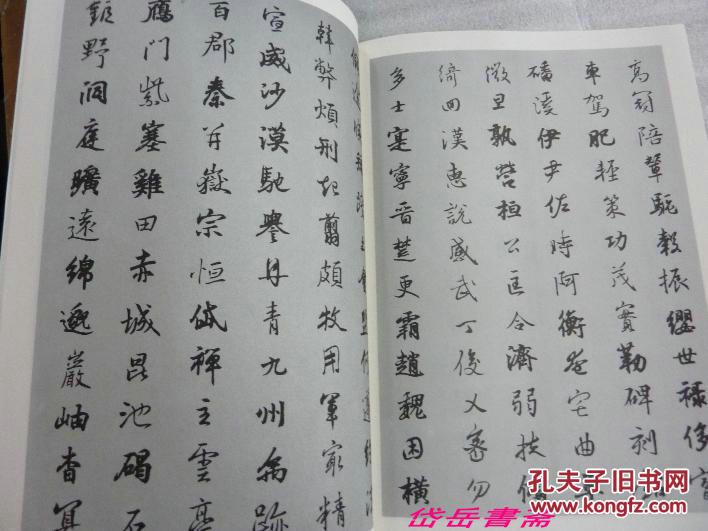 高冠陪輦驅轂振纓世祿侈富
車駕肥輕策功茂實勒碑刻
磻溪伊尹佐時阿衡奄宅曲
微旦孰營桓公匡合濟弱扶傾
綺回漢惠說感武丁俊乂密勿
多士寔寧晉楚更霸趙魏困橫
韓弊煩刑起翦頗牧用軍最精
宣威沙漠馳譽丹青九州禹跡
百郡秦并嶽宗恒岱禪主雲亭
鴈門紫塞雞田赤城昆池碣石
鉅野洞庭曠遠綿邈巖岫杳冥
孔夫子旧书网
岱岳書斋